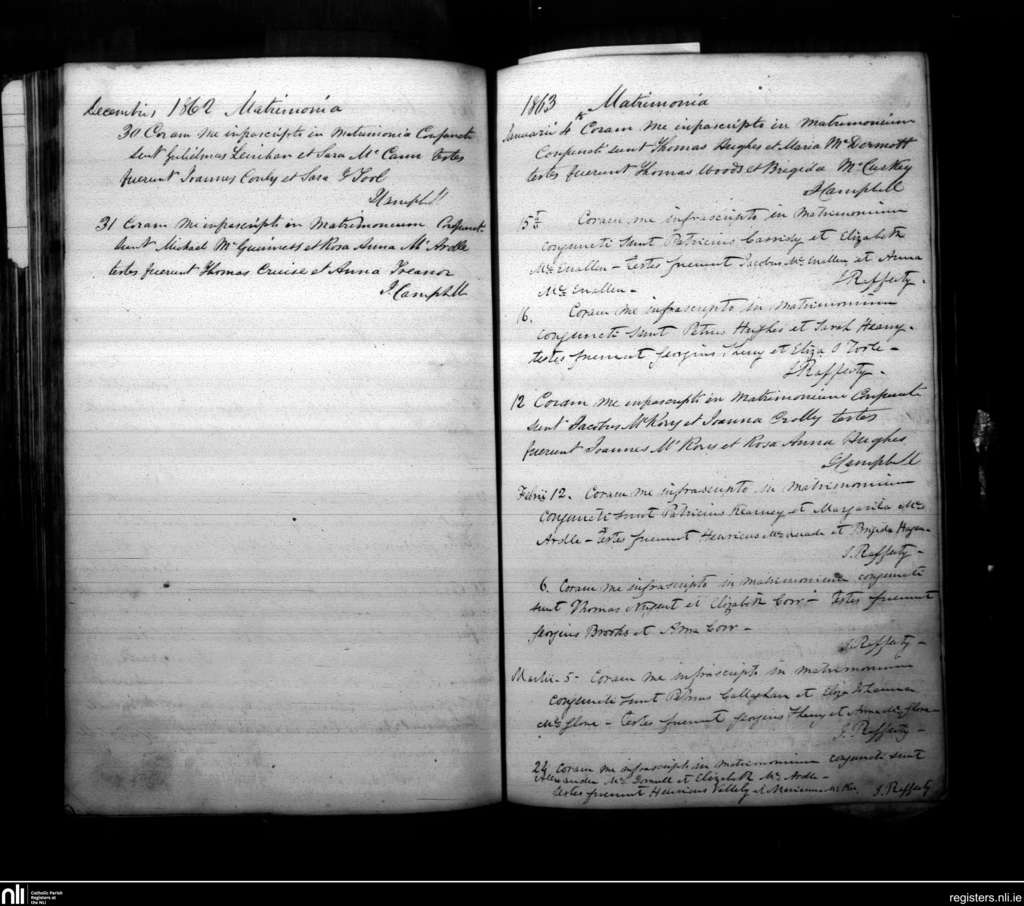 Decembris 1862 Matrimonia
30 Coram me infrascripto in matrimonio Conjuncti
sunt Gulielmus Lenihan et Sara Mc Cann testes
fuerunt Joannes Conly et Sara O Tool
J Campbell
31 Coram me infrascripto in Matrimonium Conjuncti
sunt Michael Mc Guinness et Rosa Anna Mc Ardle
testes fuerunt Thomas Cruise et Anna Treanor
J. Campbell
1863 Matrimonia
Januarii 4 Coram me infrascripto in matrimonium
Conjuncti sunt Thomas Hughes et Maria Mc Dermott
testes fuerunt Thomas Woods et Brigida Mc Caskey
J Campbell
15 Coram me infrascripto in matrimonium
conjuncti sunt Patricius Cassidy et Elizabeth
Mc Quallen - Testes fuerunt Jacobus Mc Quallen et Anna
Mc Quallen -
J Rafferty.
16. Coram me infrascripto in matrimonium
conjuncti sunt Petrus Hughes et Sarah Heany.
testes fuerunt Georgius Sheny et Eliza O Toole -
J Rafferty -
12 Coram me infrascripto in matrimonium Conjuncti
sunt Jacobus Mc Rory et Joanna Crolly testes
fuerunt Joannes Mc Rory et Rosa Anna Hughes
J Campbell
12. Coram me infrascripto in matrimonium
conjuncti sunt Patricius Kearney et Margarita Mc
Ardle - Testes fuerunt Henricus Mc Quade et Brigida Hagan -
J. Rafferty -
6. Coram me infrascripto in matrimonium conjuncti
sunt Thomas Nugent et Elizabeth Corr - Testes fuerunt
Georgius Brooks et Anna Corr -
J. Rafferty -
Martii - 5 - Coram me infrascripto in matrimonium
conjuncti sunt Petrus Callaghan et Eliza
Mc Glone - Testes fuerunt Georgius Sheny et Anna Mc Glone -
J. Rafferty -
24 Coram me infrascripto in matrimonium conjuncti sunt
Alexander Mc et Elizabeth Mc Ardle -
testes fuerunt Henricus et J. Rafferty
nli
Catholic Parish
Registers at
the NLI
registers.nli.ie